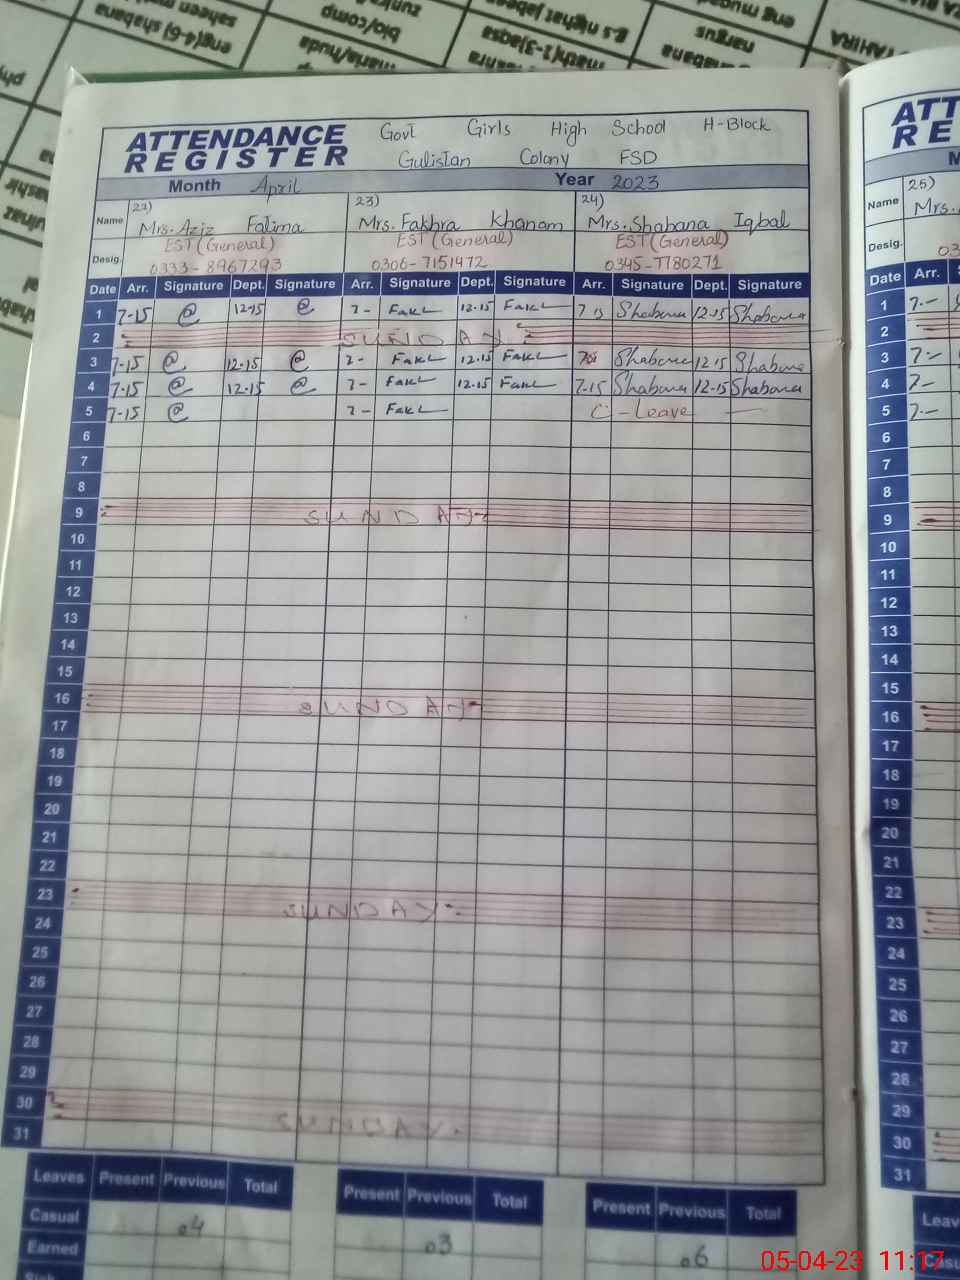 eng(4-6) shabana
saheen
bio/comp
maria/huda
zunka
g.s nighat jabeen
math(1-3)aqsa
eng muqad
nargus
TAHIRA
phy
ATTENDANCE
REGISTER
Govt Girls High School H-Block
Gulistan Colony FSD
Month April Year 2023
Name 22) Mrs. Aziz Fatima 23) Mrs. Fakhra Khanam 24) Mrs. Shabana Iqbal
Desig. EST (General) EST (General) EST (General)
0333-8967293 0306-7151472 0345-7780271
Date Arr. Signature Dept. Signature Arr. Signature Dept. Signature Arr. Signature Dept. Signature
1 7-15 @ 12-15 @ 7- Fakh 12-15 Fakh 7 15 Shabana 12-15 Shabana
2 SUNDAY
3 7-15 @ 12-15 @ 7- Fakh 12-15 Fakh Shabana 12 15 Shabana
4 7-15 @ 12-15 @ 7- Fakh 12-15 Fakh 7-15 Shabana 12-15 Shabana
5 7-15 @ 7- Fakh C-Leave
6
7
8
9 SUNDAY
10
11
12
13
14
15
16 SUNDAY
17
18
19
20
21
22
23 SUNDAY
24
25
26
27
28
29
30 SUNDAY
31
Leaves Present Previous Total Present Previous Total Present Previous Total
Casual 04 03 06
Earned
ATT
RE
M
Name 25) Mrs.
Desig. 03
Date Arr.
1 7-
2
3 7-
4 7-
5 7-
6
7
8
9
10
11
12
13
14
15
16
17
18
19
20
21
22
23
24
25
26
27
28
29
30
31
Leav
Casu
05-04-23 11:17